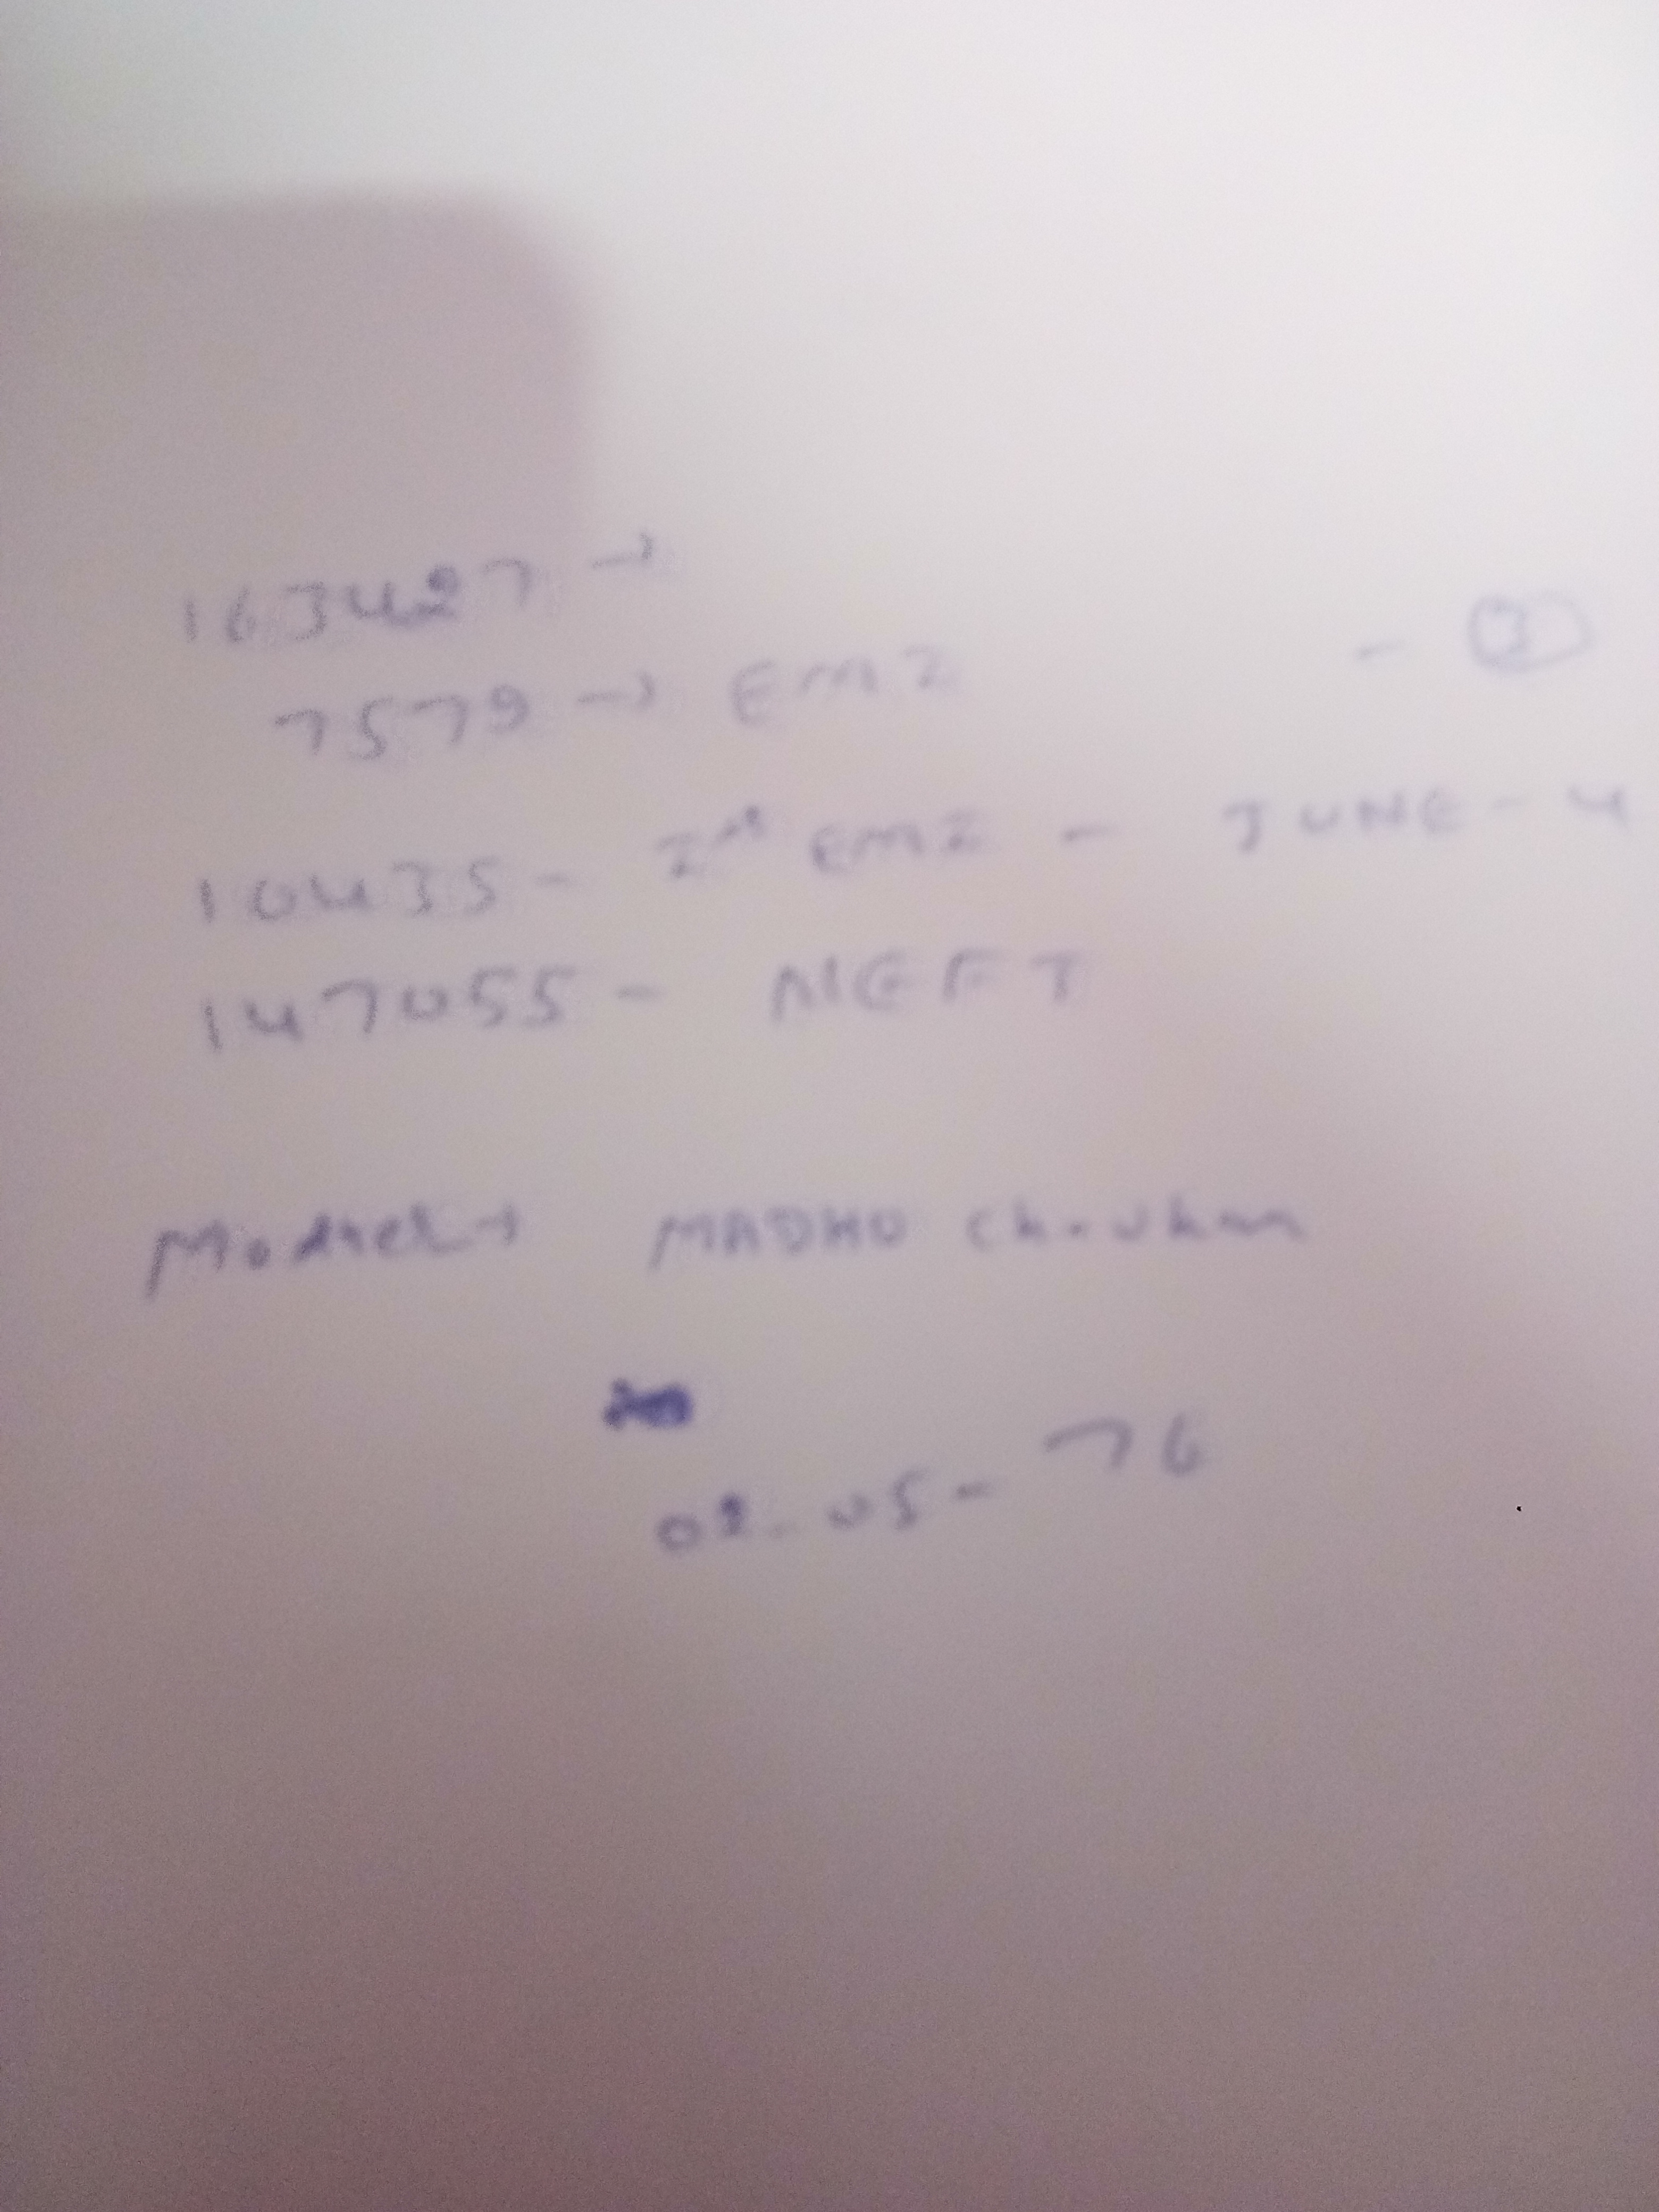 163427 →
7579 → EMI - ③
10435 - Ist EMI - JUNE - 4
147055 - NEFT
MADHO Chauhan
02-05-76